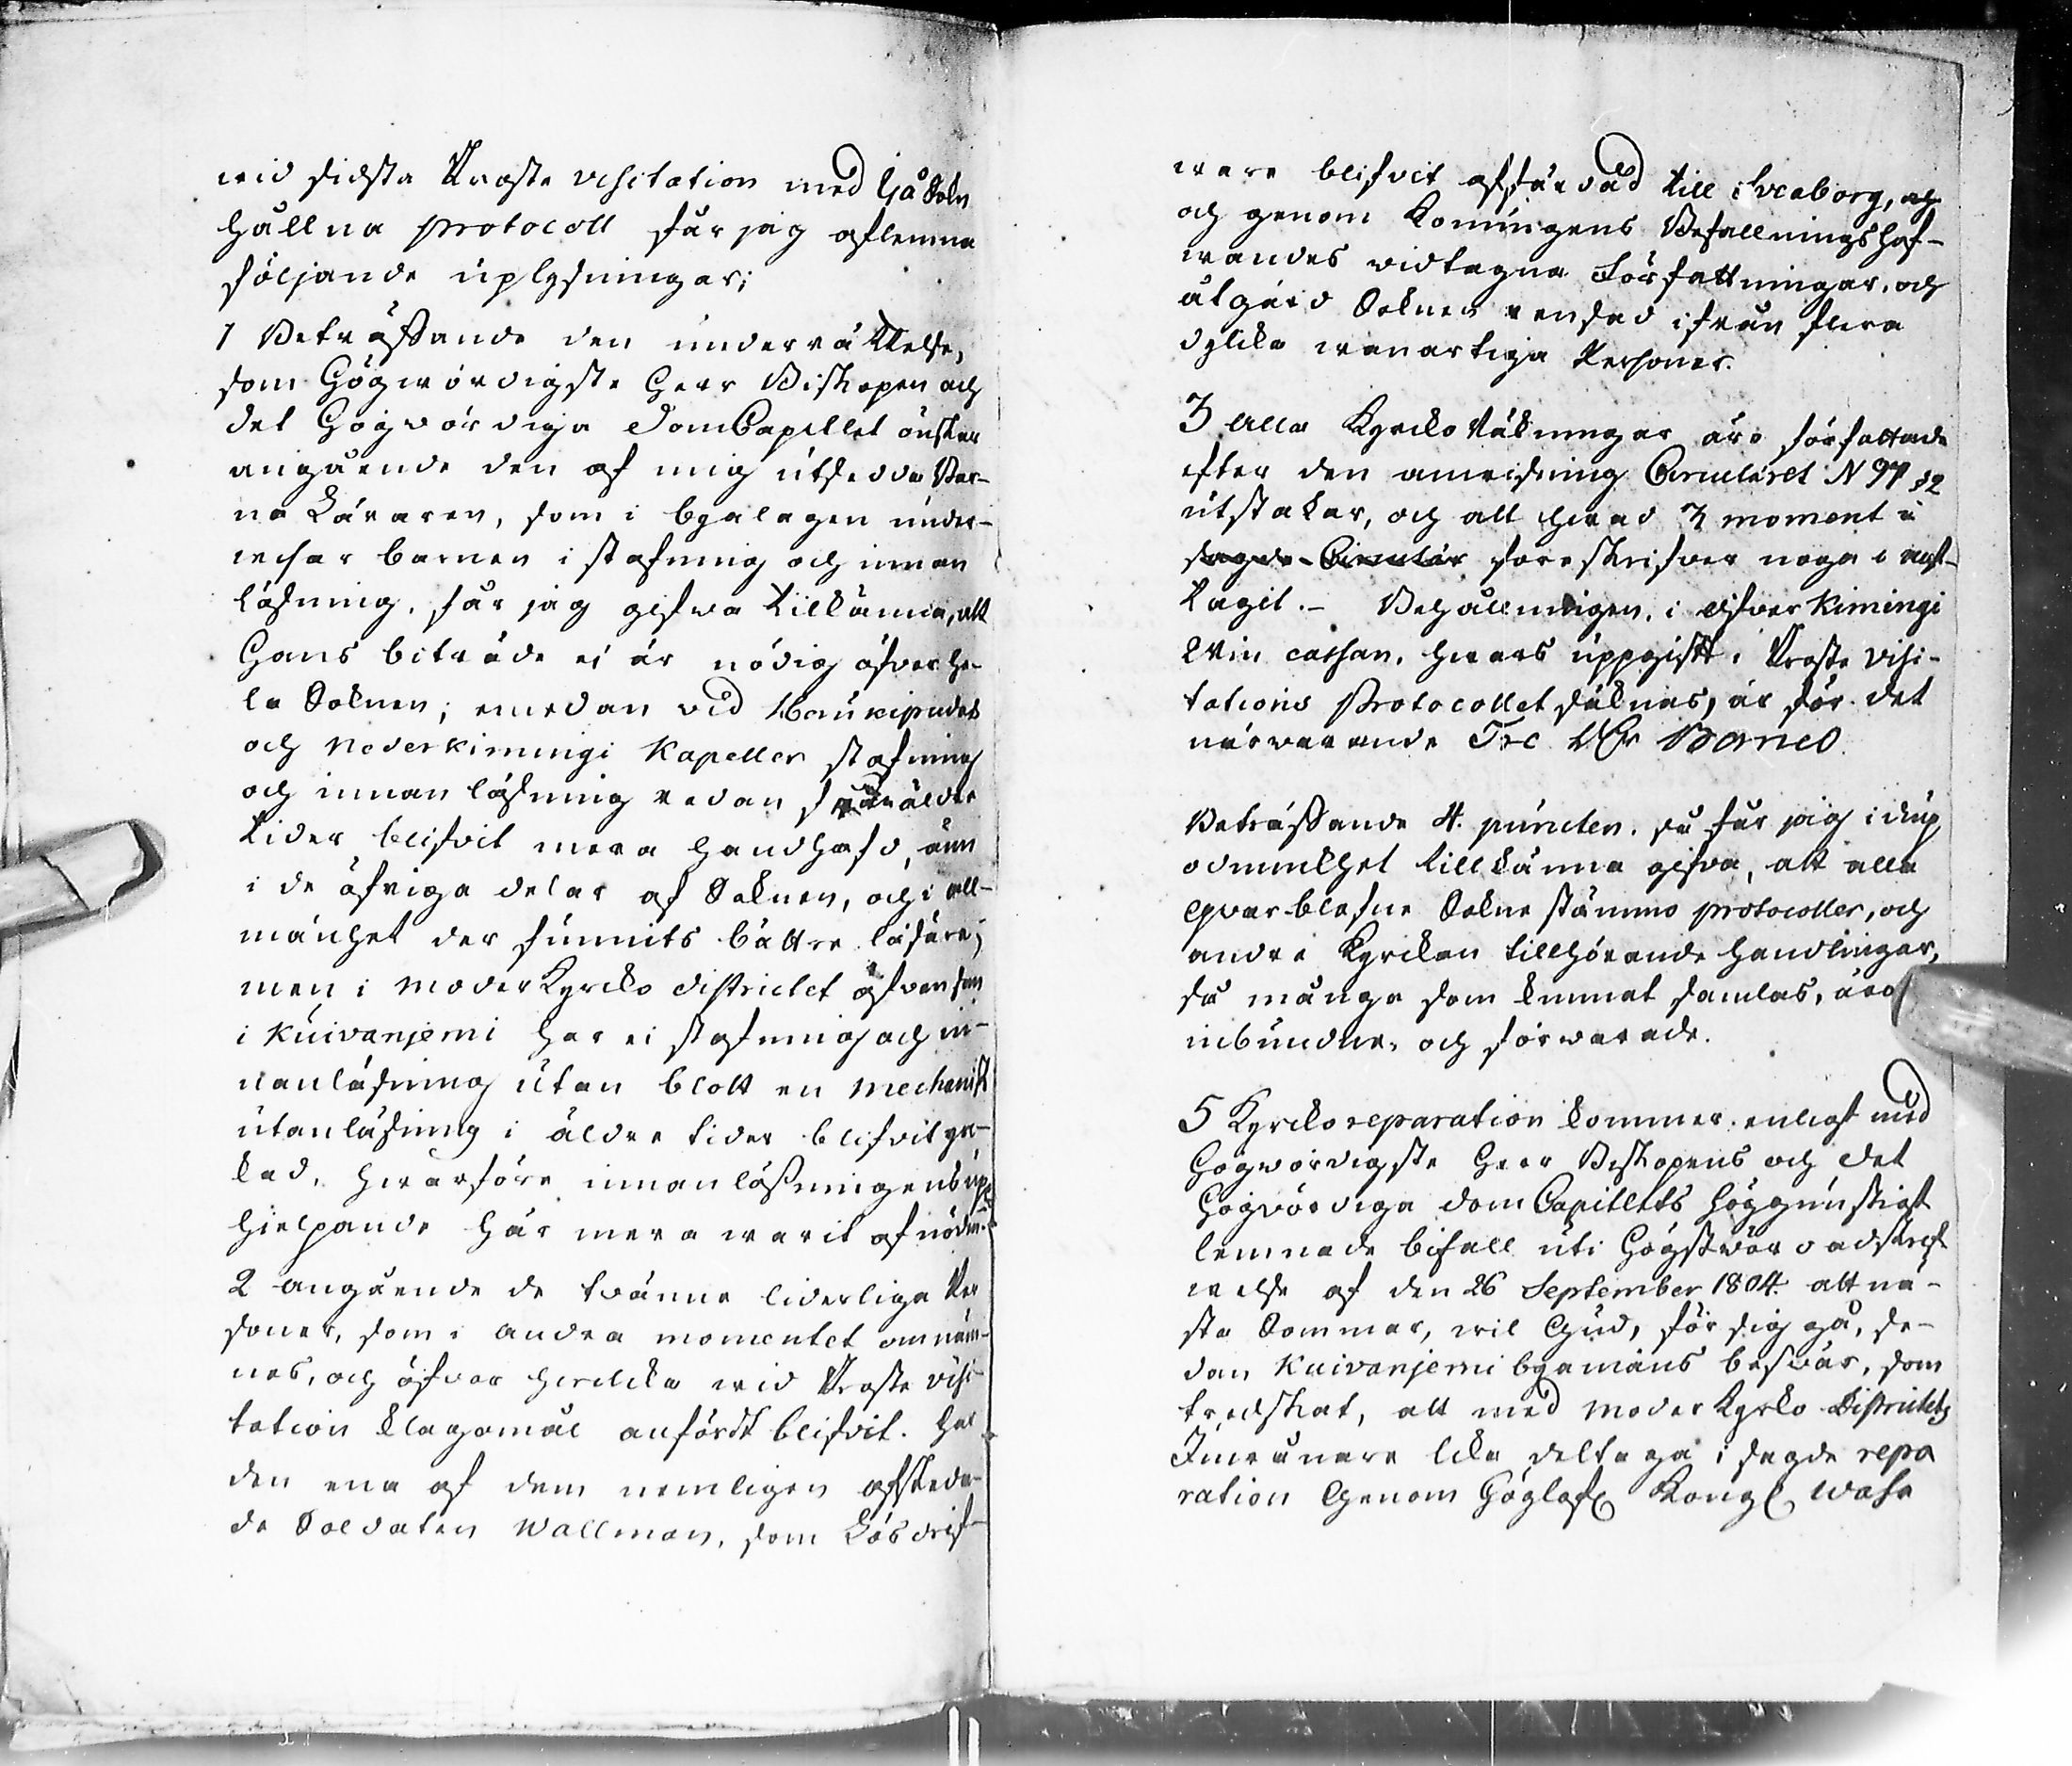 wid sidsta Proste visitation med Ijå Sokn
hållna protocoll får jag aflemna
följande uplysningar;
1 Beträffande den underrättelse,
som Högwördigste Herr Biskopen och
det Högwördiga DomCapitlet önskar
angående den af mig utsedda Bar-
na Läraren, som i byalagen under-
wisar barnen i stafning och innan
läsning, får jag gifwa tillkänna, att
Hans biträde ei är nödig öfver he-
la Soknen; emedan vid Haukipudas
och Nederkimingi Kapeller stafning
och innan läsning redan från äldre
tider blifvit mera handhafd, änn
i de öfriga delar af Soknen, och i all-
mänhet der funnits bättre läsare;
men i Moder Kyrko districtet äfvensom
i Kuivanjemi har ei stafning och in-
nanläsning utan blott en mechanisk
utanläsning i äldre tider blifvit yr-
kad, hwarföre innanläsningens upp
hielpande här mera warit af nöden.
2 angående de tvänne liderliga Per
soner, som i andra momentet omnäm-
nes, och öfver hwilcka wid Proste visi-
tation klagomål anfördt blifvit. Har
den ena af dem nemligen afskeda-
de Soldaten Wallman, som Lösdrif-
ware blifvit affärdad till Sveaborg, och
och genom Konungens Befallningshaf-
wandes widtagna Författningar, och
åtgärd Soknen rensad ifrån flera
dylika wanartiga Personer.
3 Alla Kyrcko Räkningar äro författade
efter den anwisning Circulairet N 97 §2
utstakar, och allt hwad 3 moment i
sagde Circulärföreskrifver noga i akt-
tagit. - Behållningen, i Öfver Kimingi
Win cassan, hwars uppgift i Proste Visi-
tations Protocollet saknas, är för det
närwarande Tre RDr Banco.
Beträffande 4. puncten, så får jag i diup
ödmiukhet tillkänna gifva, att alla
qvarblefne Sokne stämmo protocoller, och
andra Kyrckan tillhörande handlingar,
så många som kunnat samlas, äro
inbundne, och förwarade.
5 Kyrckoreparation kommer, enligt med
Högwördigste Herr Biskopens och det
Högvördiga dom Capitlets höggunstigst
lemnade bifall uti Högstwördadskrif
welse af den 26 September 1804 att nä-
sta Sommar, wil Gud, för sig gå, se-
dan Kuivanjemi byamäns besvär, som
tredskat, att med Moder Kyrko Districtets
Inwånare lika deltaga i sagde repa
ration Genom Höglofl Kongl Wasa